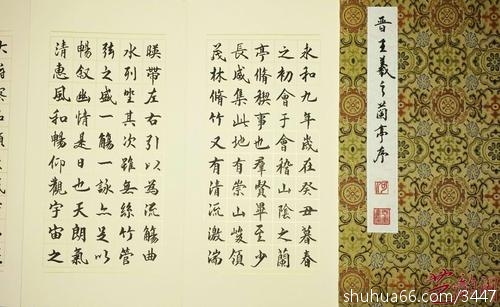 晋王羲之蘭亭序
永和九年歲在癸丑暮春
之初會于會稽山陰之蘭
亭脩稧事也羣賢畢至少
長咸集此地有崇山峻領
茂林脩竹又有清流激湍
暎帶左右引以為流觴曲
水列坐其次雖無絲竹管
弦之盛一觴一詠亦足以
暢叙幽情是日也天朗氣
清惠風和暢仰觀宇宙之
大
shuhua66.com/3447